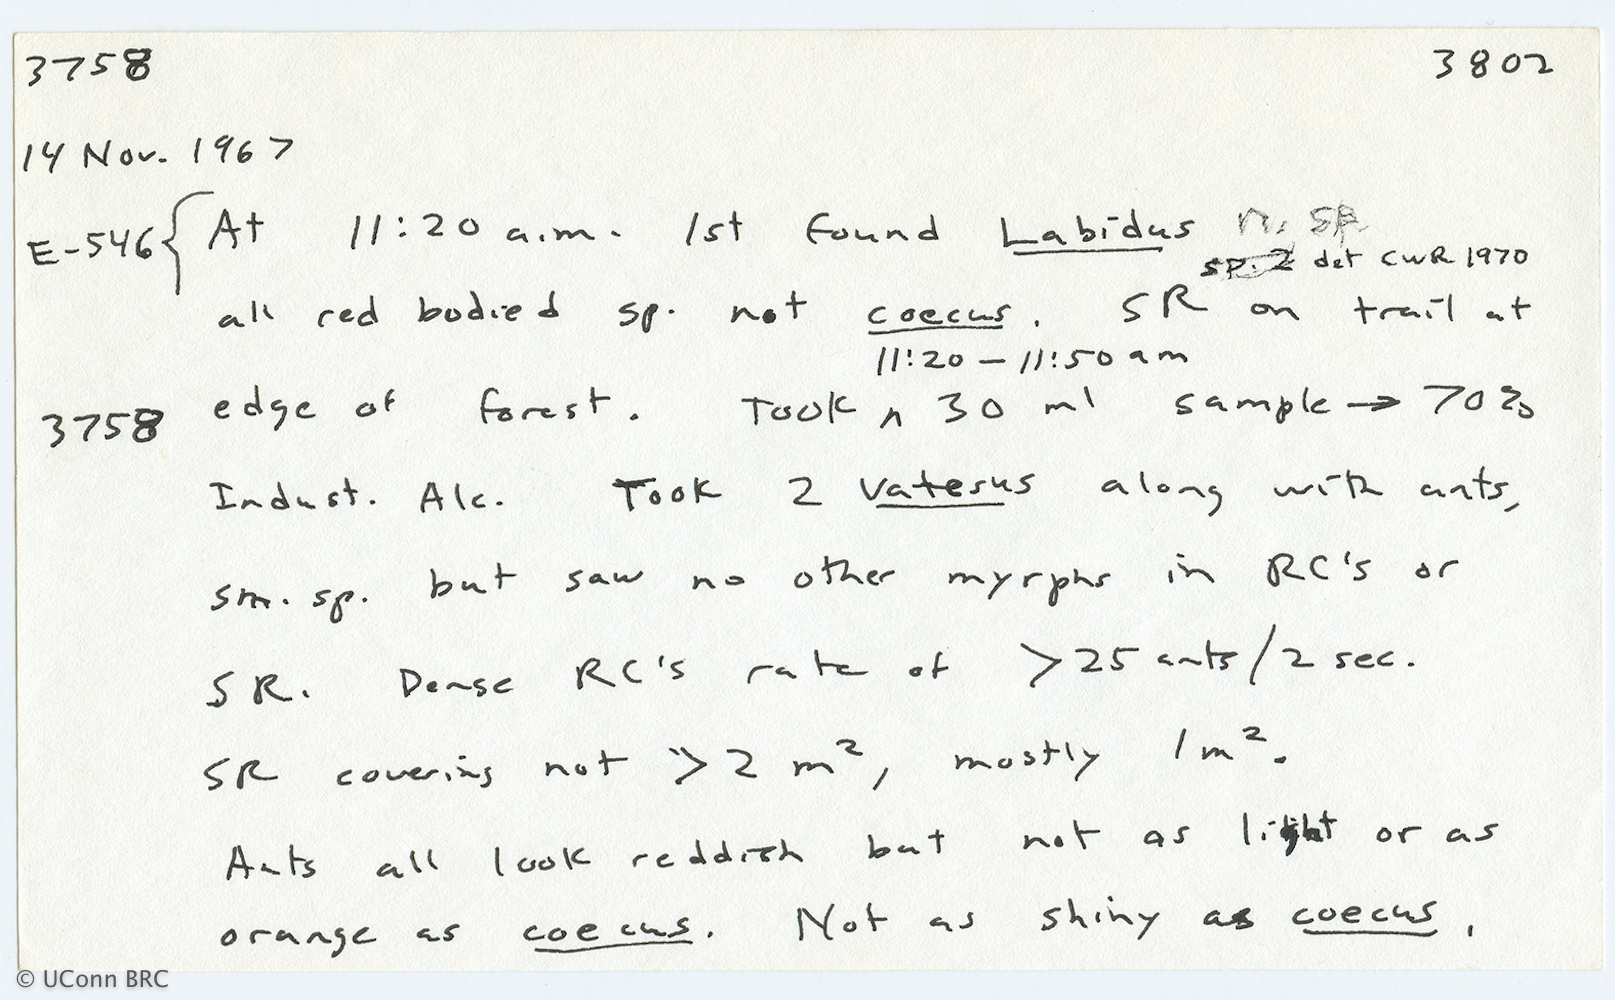 3758 3802
14 Nov. 1967
E-546 { At 11:20 a.m. 1st found Labidus n. sp.
sp. 2 det CWR 1970
all red bodied sp. not coecus. SR on trail at
11:20 – 11:50 am
3758 edge of forest. Took ^ 30 ml sample → 70%
Indust. Alc. Took 2 Vatesus along with ants,
sm. sp. but saw no other myrphs in RC's or
SR. Dense RC's rate of >25 ants/2 sec.
SR covering not >2 m², mostly 1m².
Ants all look reddish but not as light or as
orange as coecus. Not as shiny as coecus.
© UConn BRC